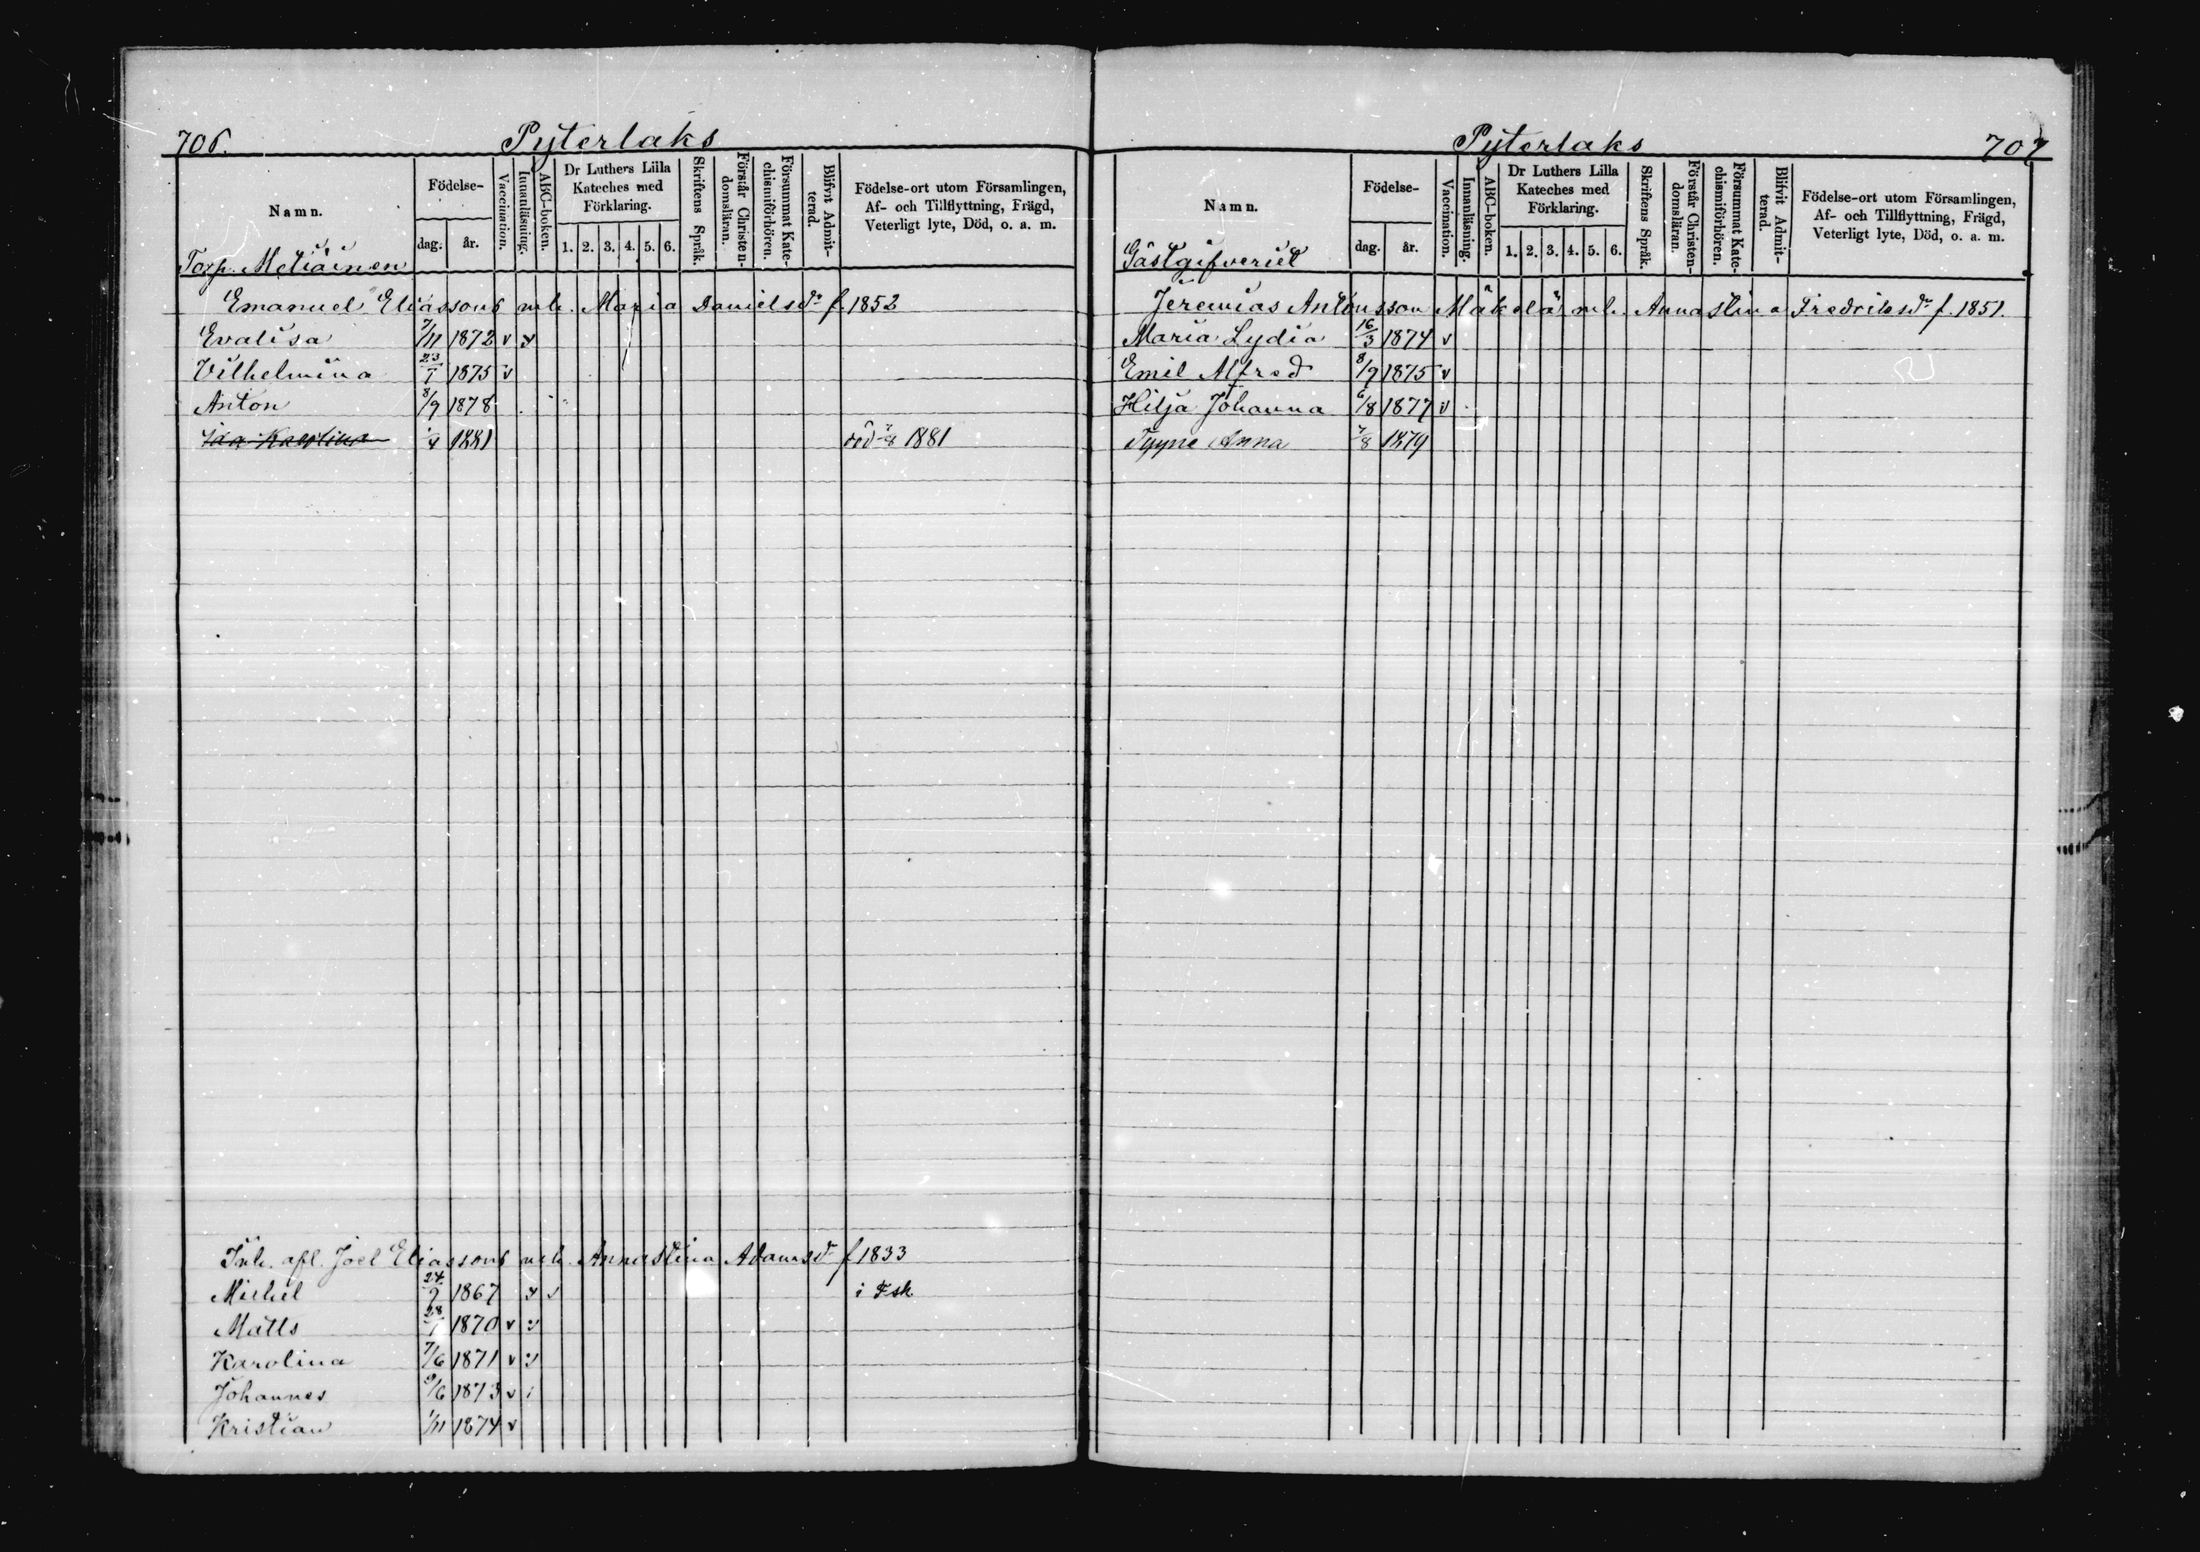 706.
Pyterlaks
Namn.
Födelse-
dag.
år.
Vaccination.
Innanläsning.
ABC-boken.
Dr Luthers Lilla Kateches med Förklaring.
1. 2. 3. 4. 5. 6.
Skriftens Språk.
Förstår Christendomsläran.
Försummat Katechismiförhören.
Blifvit Admitterad.
Födelse-ort utom Församlingen,
Af- och Tillflyttning, Frägd,
Veterligt lyte, Död, o. a. m.
Torp. Metiäinen
Emanuel Eliassons mh. Maria Danielsdr f. 1852
Evalisa 7/11 1872 v v
Vilhelmina 23/1 1875 v
Anton 8/9 1878
Ida Karolina 1881 död 1881
Inh. afl. Joel Eliassons mh. Annastina Adamsdr f 1833
Michel 24/9 1867 v v i Fsk
Matts 28/1 1870 v v
Karolina 7/6 1871 v v
Johannes 9/6 1873 v
Kristian 1/11 1874 v
Pyterlaks
707
Namn.
Födelse-
dag.
år.
Vaccination.
Innanläsning.
ABC-boken.
Dr Luthers Lilla Kateches med Förklaring.
1. 2. 3. 4. 5. 6.
Skriftens Språk.
Förstår Christendomsläran.
Försummat Katechismiförhören.
Blifvit Admitterad.
Födelse-ort utom Församlingen,
Af- och Tillflyttning, Frägd,
Veterligt lyte, Död, o. a. m.
Gästgifveriet
Jeremias Antonsson Mäkelä mh. Annastina Fredriksdr f. 1851.
Maria Lydia 16/3 1874 v
Emil Alfred 8/9 1875 v
Hilja Johanna 6/8 1877 v
Tyyne Anna 7/8 1879